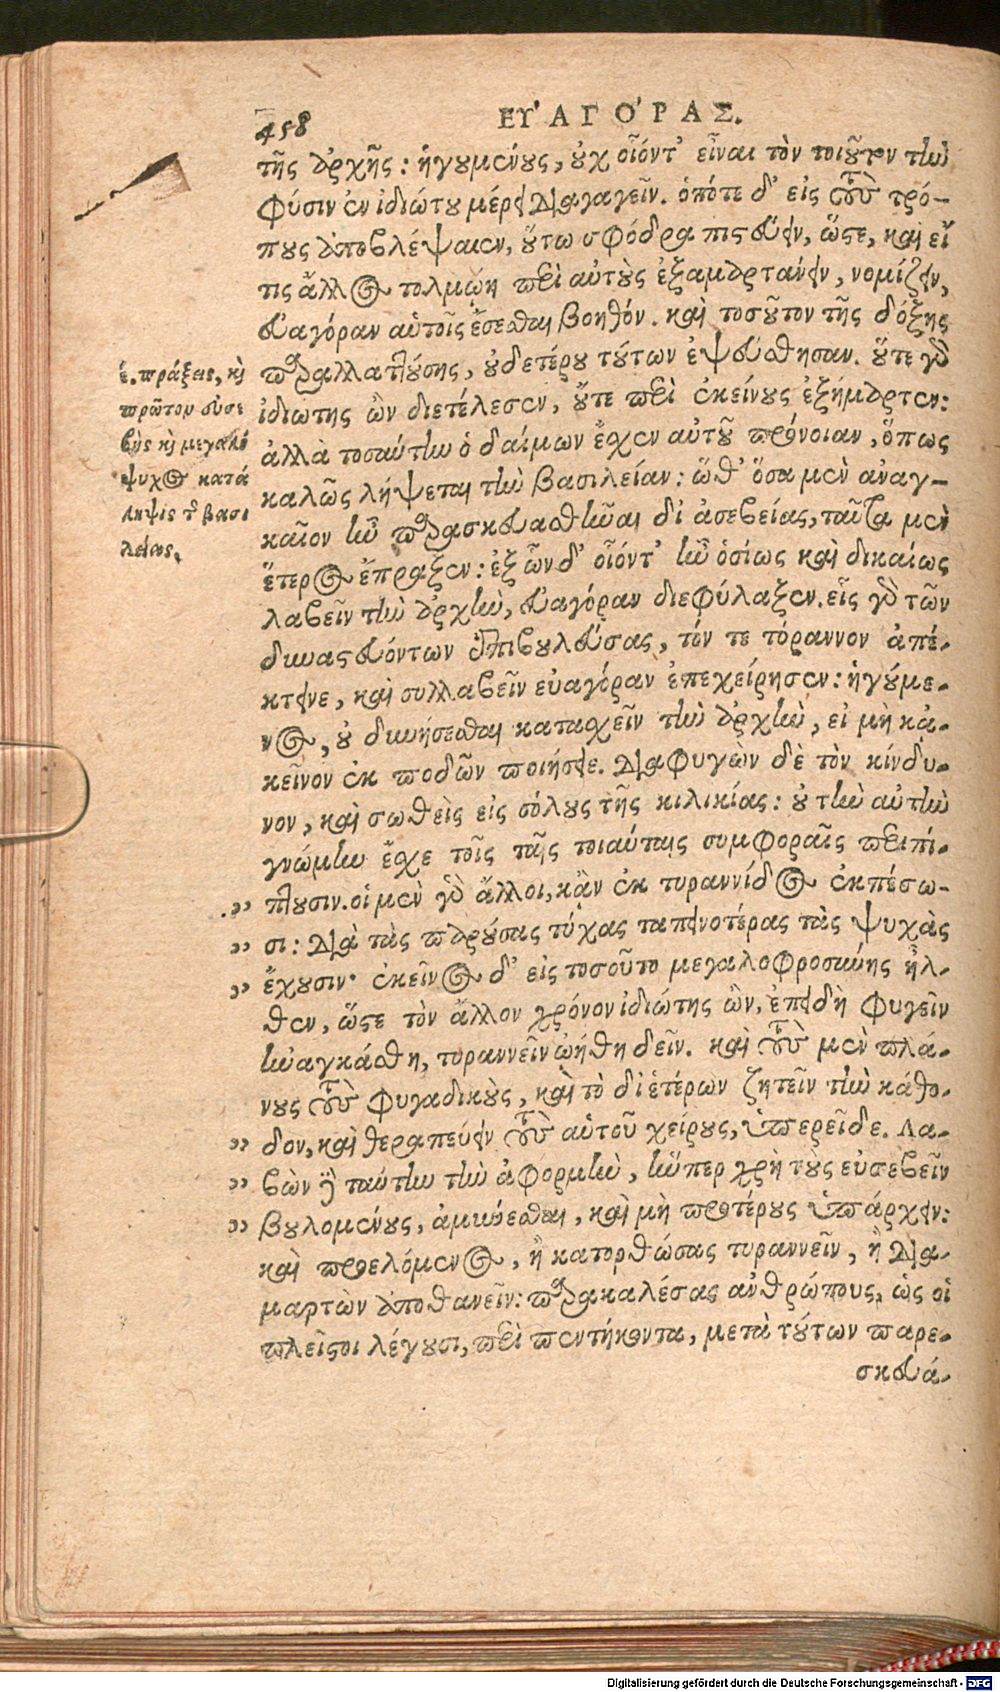 458
ΕΥ᾿ΑΓΟ΄ΡΑΣ.
τῆς ἀρχῆς: ἡγουμένους, οὐχ οἷόντ᾽ εἶναι τὸν τοιοῦτον τὴν
φύσιν ἐν ἰδιώτου μέρει διαγαγεῖν. ὁπότε δ᾽ εἰς τοὺς τρό-
πους ἀποβλέψαιεν, οὕτω σφόδρα πιστεύειν, ὥστε, καὶ εἴ
τις ἄλλος τολμῴη περὶ αὐτοὺς ἐξαμαρτάνειν, νομίζειν,
εὐαγόραν αὑτοῖς ἔσεσθαι βοηθόν. καὶ τοσοῦτον τῆς δόξης
παραλλαττούσης, οὐδετέρου τούτων ἐψεύσθησαν. οὔτε γὰρ
ἰδιώτης ὢν διετέλεσεν, οὔτε περὶ ἐκείνους ἐξήμαρτεν:
ἀλλὰ τοσαύτην ὁ δαίμων ἔχεν αὐτοῦ πρόνοιαν, ὅπως
καλῶς λήψεται τὴν βασιλείαν: ὥσθ᾽ ὅσα μὲν ἀναγ-
καῖον ἦν παρασκευασθῆναι δι᾽ ἀσεβείας, ταῦτα μὲν
ἕτερος ἔπραξεν: ἐξ ὧν δ᾽ οἷόντ᾽ ἦν ὁσίως καὶ δικαίως
λαβεῖν τὴν ἀρχὴν, εὐαγόραν διεφύλαξεν. εἷς γὰρ τῶν
δυναστευόντων ἐπιβουλεύσας, τόν τε τύραννον ἀπέ-
κτεινε, καὶ συλλαβεῖν εὐαγόραν ἐπεχείρησεν: ἡγούμε-
νος, οὐ δυνήσεσθαι κατασχεῖν τὴν ἀρχὴν, εἰ μὴ κἀ-
κεῖνον ἐκ ποδῶν ποιήσειε. διαφυγὼν δὲ τὸν κίνδυ-
νον, καὶ σωθεὶς εἰς σόλους τῆς κιλικίας: οὐ τὴν αὐτὴν
γνώμην ἔχε τοῖς ταῖς τοιαύταις συμφοραῖς περιπί-
πτουσιν. οἱ μὲν γὰρ ἄλλοι, κἂν ἐκ τυραννίδος ἐκπέσω-
σι: διὰ τὰς παρούσας τύχας ταπεινοτέρας τὰς ψυχὰς
ἔχουσιν· ἐκεῖνος δ᾽ εἰς τοσοῦτο μεγαλοφροσύνης ἦλ-
θεν, ὥστε τὸν ἄλλον χρόνον ἰδιώτης ὢν, ἐπειδὴ φυγεῖν
ἠναγκάσθη, τυραννεῖν ᾠήθη δεῖν. καὶ τοὺς μὲν πλά-
νους τοὺς φυγαδικοὺς, καὶ τὸ δι᾽ ἑτέρων ζητεῖν τὴν κάθο-
δον, καὶ θεραπεύειν τοὺς αὑτοῦ χείρους, ὑπερεῖδε. λα-
βὼν δὲ ταύτην τὴν ἀφορμὴν, ἥνπερ χρὴ τοὺς εὐσεβεῖν
βουλομένους, ἀμύνεσθαι, καὶ μὴ προτέρους ὑπάρχειν:
καὶ προελόμενος, ἢ κατορθώσας τυραννεῖν, ἢ δια-
μαρτὼν ἀποθανεῖν: παρακαλέσας ἀνθρώπους, ὡς οἱ
πλεῖστοι λέγουσι, περὶ πεντήκοντα, μετὰ τούτων παρε-
σκευά-
έ. πράξεις, καὶ
πρῶτον εὐσε
βὴς καὶ μεγαλό
ψυχος κατά
ληψις τῆς βασι
λείας.